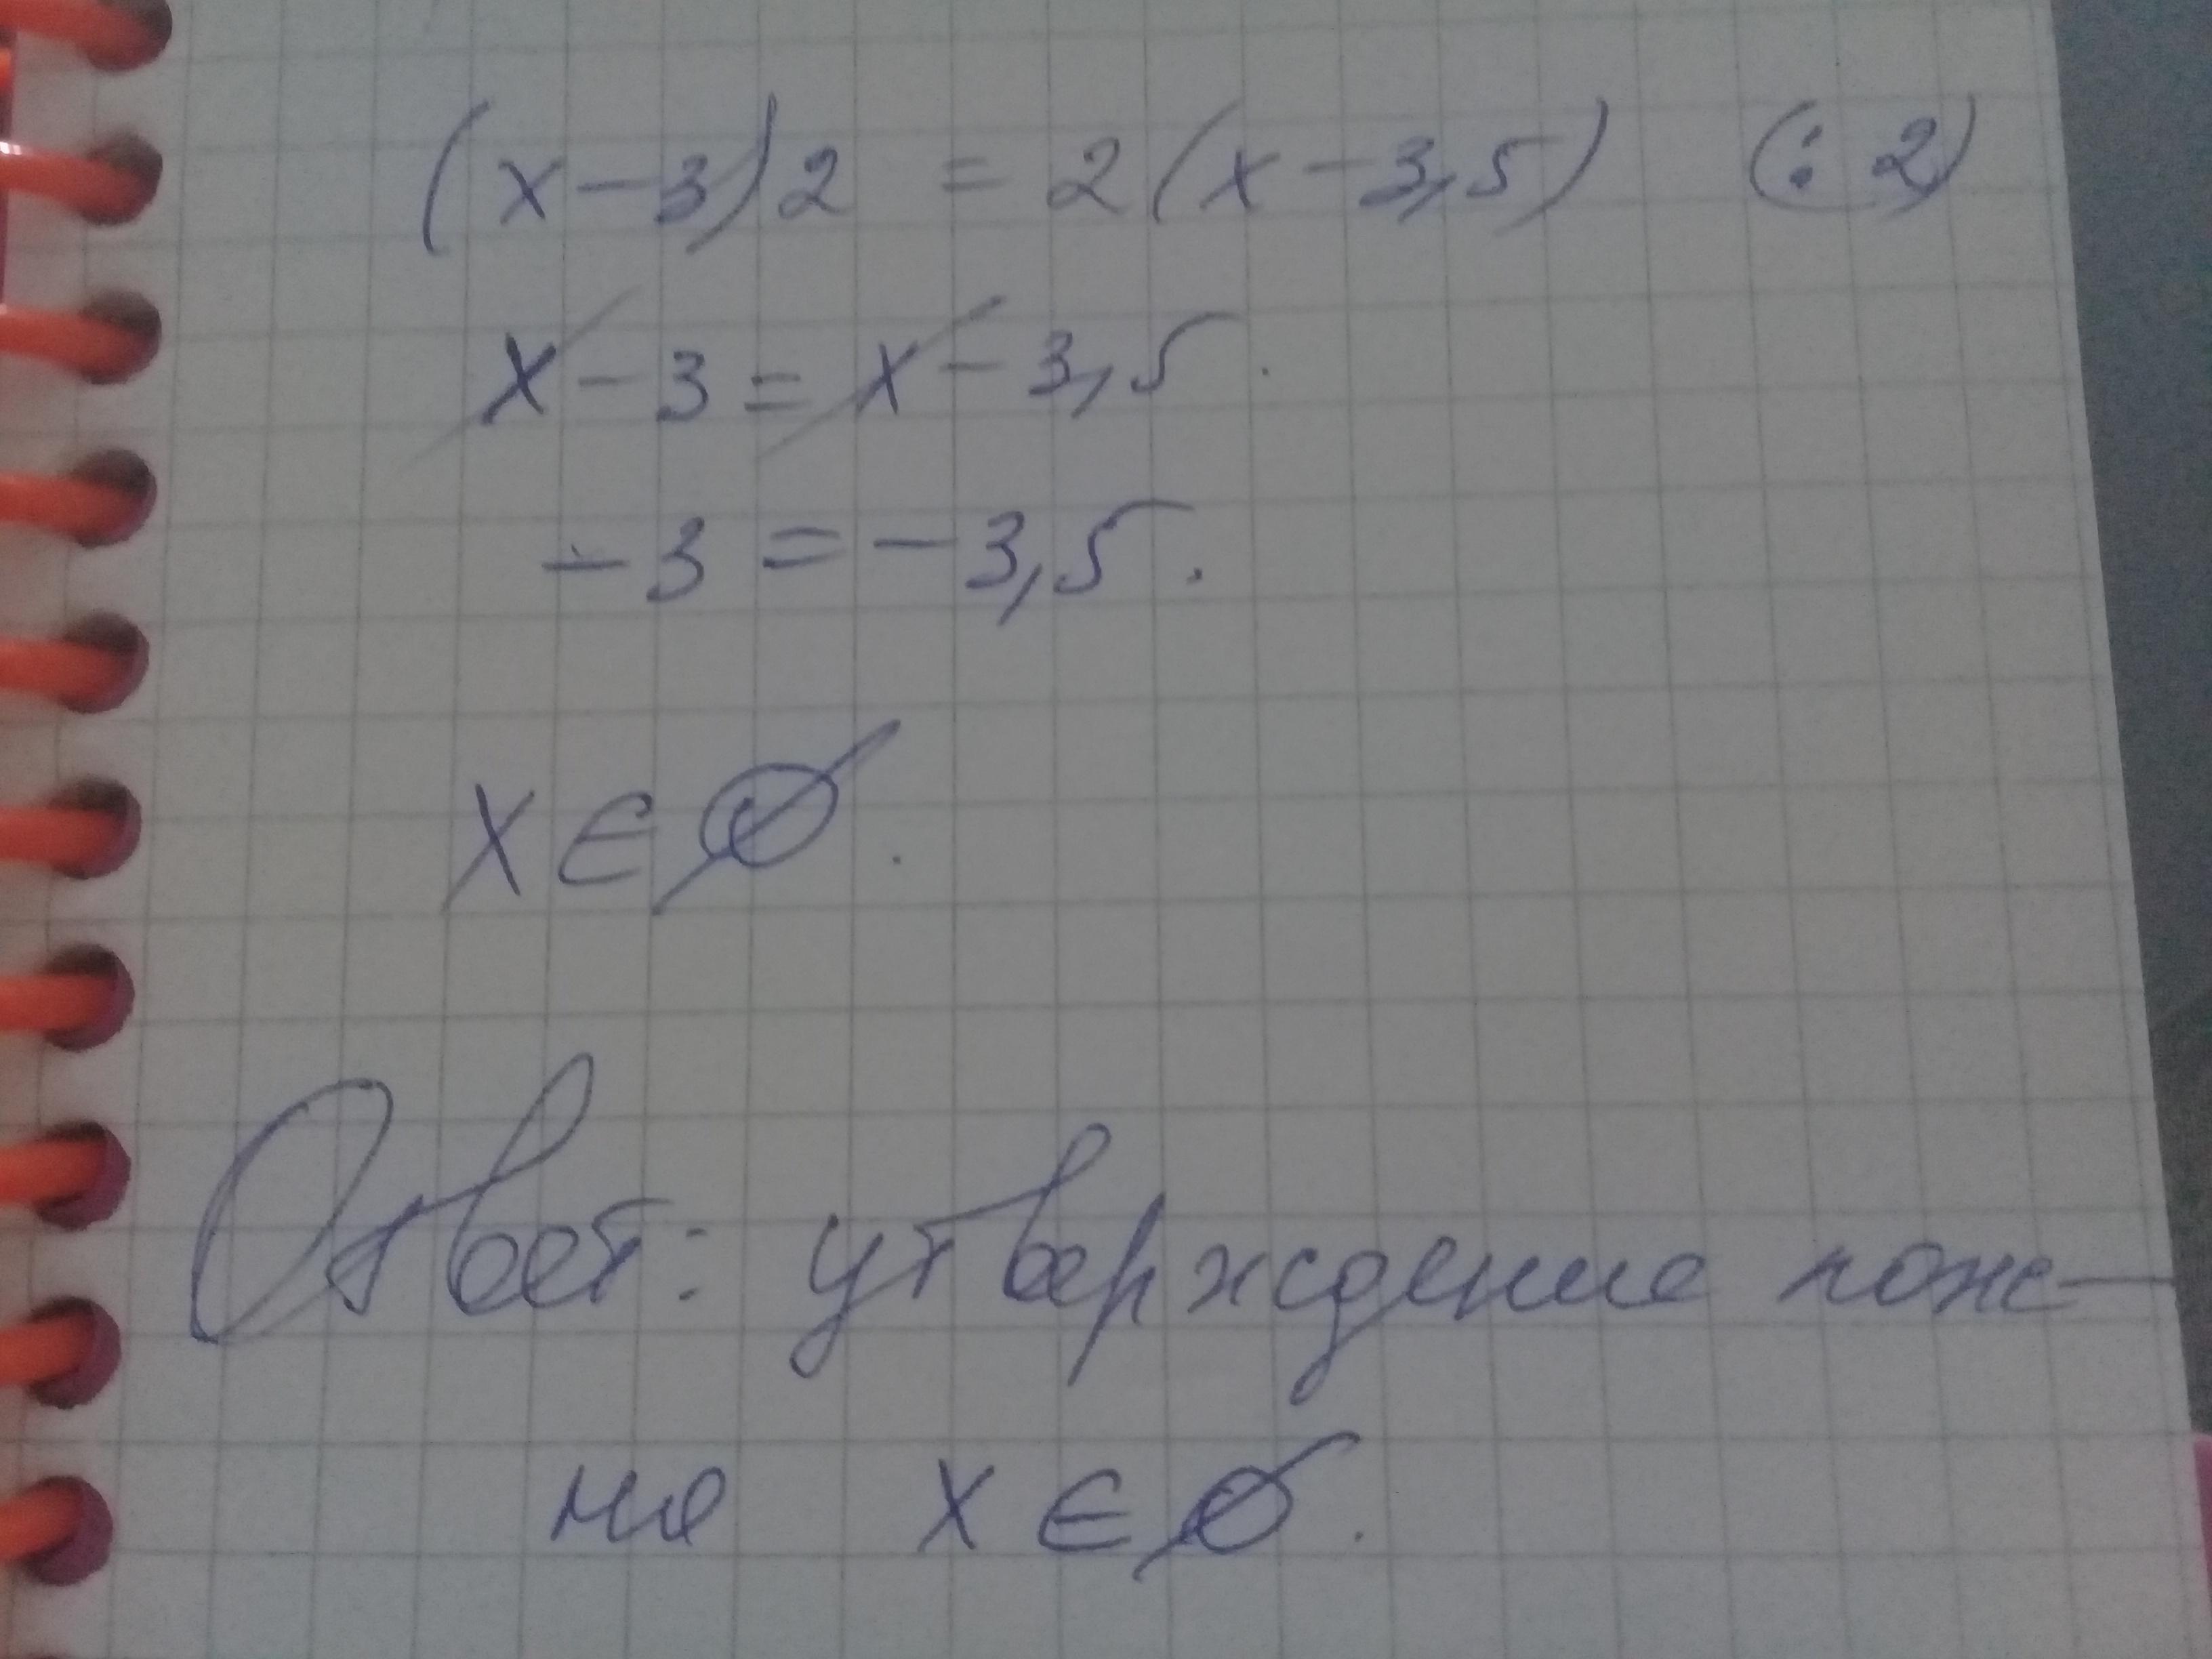 (x-3)2 = 2(x-3,5) (:2)
x-3=x-3,5.
-3=-3,5.
x∈∅.
Ответ: утверждение лож-
но x∈∅.